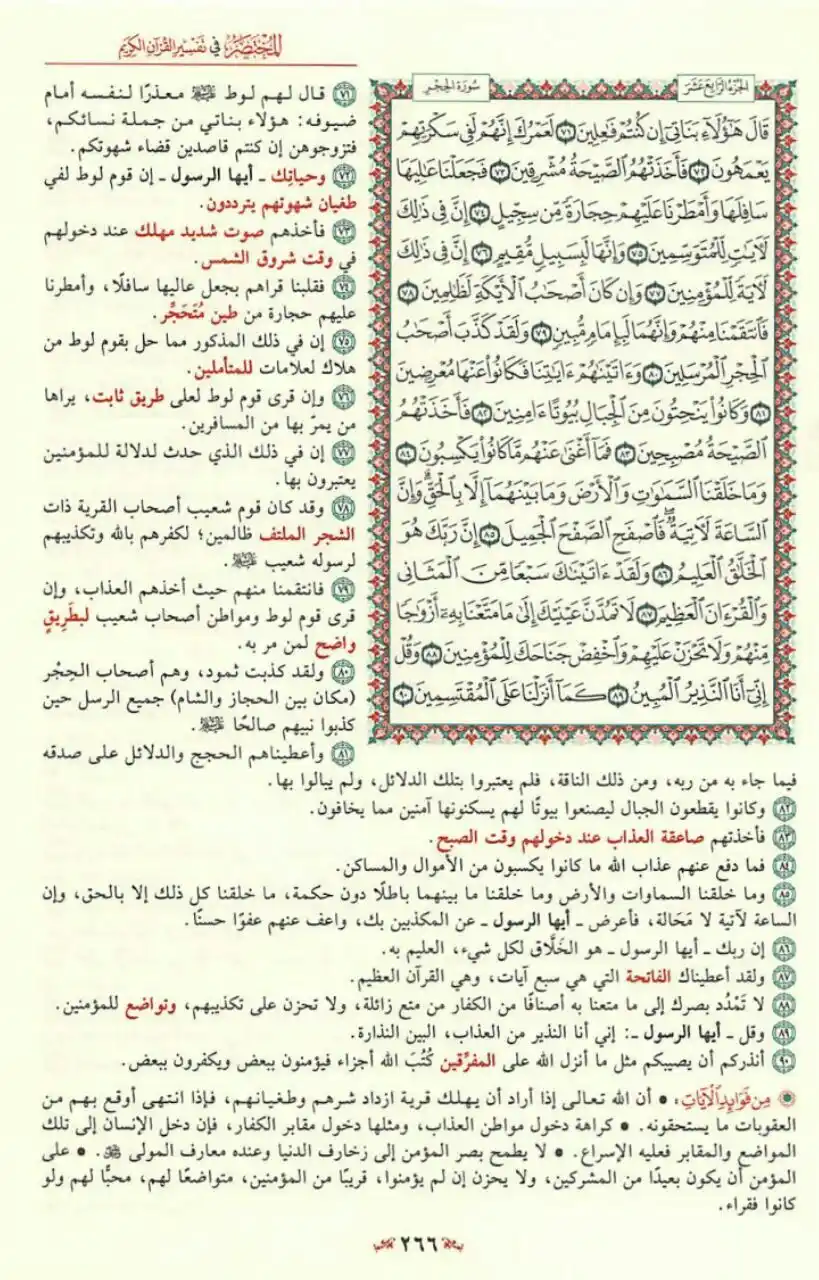 المختصر في تفسير القرآن الكريم
الجزء الرابع عشر
سورة الحجر
قَالَ هَٰٓؤُلَآءِ بَنَاتِيٓ إِن كُنتُمۡ فَٰعِلِينَ ٧١ لَعَمۡرُكَ إِنَّهُمۡ لَفِي سَكۡرَتِهِمۡ
يَعۡمَهُونَ ٧٢ فَأَخَذَتۡهُمُ ٱلصَّيۡحَةُ مُشۡرِقِينَ ٧٣ فَجَعَلۡنَا عَٰلِيَهَا
سَافِلَهَا وَأَمۡطَرۡنَا عَلَيۡهِمۡ حِجَارَةٗ مِّن سِجِّيلٍ ٧٤ إِنَّ فِي ذَٰلِكَ
لَأٓيَٰتٖ لِّلۡمُتَوَسِّمِينَ ٧٥ وَإِنَّهَا لَبِسَبِيلٖ مُّقِيمٍ ٧٦ إِنَّ فِي ذَٰلِكَ
لَأٓيَةٗ لِّلۡمُؤۡمِنِينَ ٧٧ وَإِن كَانَ أَصۡحَٰبُ ٱلۡأَيۡكَةِ لَظَٰلِمِينَ ٧٨
فَٱنتَقَمۡنَا مِنۡهُمۡ وَإِنَّهُمَا لَبِإِمَامٖ مُّبِينٖ ٧٩ وَلَقَدۡ كَذَّبَ أَصۡحَٰبُ
ٱلۡحِجۡرِ ٱلۡمُرۡسَلِينَ ٨٠ وَءَاتَيۡنَٰهُمۡ ءَايَٰتِنَا فَكَانُواْ عَنۡهَا مُعۡرِضِينَ
٨١ وَكَانُواْ يَنۡحِتُونَ مِنَ ٱلۡجِبَالِ بُيُوتًا ءَامِنِينَ ٨٢ فَأَخَذَتۡهُمُ
ٱلصَّيۡحَةُ مُصۡبِحِينَ ٨٣ فَمَآ أَغۡنَىٰ عَنۡهُم مَّا كَانُواْ يَكۡسِبُونَ ٨٤
وَمَا خَلَقۡنَا ٱلسَّمَٰوَٰتِ وَٱلۡأَرۡضَ وَمَا بَيۡنَهُمَآ إِلَّا بِٱلۡحَقِّۗ وَإِنَّ
ٱلسَّاعَةَ لَأٓتِيَةٞۖ فَٱصۡفَحِ ٱلصَّفۡحَ ٱلۡجَمِيلَ ٨٥ إِنَّ رَبَّكَ هُوَ
ٱلۡخَلَّٰقُ ٱلۡعَلِيمُ ٨٦ وَلَقَدۡ ءَاتَيۡنَٰكَ سَبۡعٗا مِّنَ ٱلۡمَثَانِي
وَٱلۡقُرۡءَانَ ٱلۡعَظِيمَ ٨٧ لَا تَمُدَّنَّ عَيۡنَيۡكَ إِلَىٰ مَا مَتَّعۡنَا بِهِۦٓ أَزۡوَٰجٗا
مِّنۡهُمۡ وَلَا تَحۡزَنۡ عَلَيۡهِمۡ وَٱخۡفِضۡ جَنَاحَكَ لِلۡمُؤۡمِنِينَ ٨٨ وَقُلۡ
إِنِّيٓ أَنَا ٱلنَّذِيرُ ٱلۡمُبِينُ ٨٩ كَمَآ أَنزَلۡنَا عَلَى ٱلۡمُقۡتَسِمِينَ ٩٠
٧١ قال لهم لوط ﷺ معذرًا لنفسه أمام
ضيوفه: هؤلاء بناتي من جملة نسائكم،
فتزوجوهن إن كنتم قاصدين قضاء شهوتكم.
٧٢ وحياتِك ـ أيها الرسول ـ إن قوم لوط لفي
طغيان شهوتهم يترددون.
٧٣ فأخذهم صوت شديد مهلك عند دخولهم
في وقت شروق الشمس.
٧٤ فقلبنا قراهم بجعل عاليها سافلًا، وأمطرنا
عليهم حجارة من طين مُتَحَجِّر.
٧٥ إن في ذلك المذكور مما حل بقوم لوط من
هلاك لعلامات للمتأملين.
٧٦ وإن قرى قوم لوط لعلى طريق ثابت، يراها
من يمرّ بها من المسافرين.
٧٧ إن في ذلك الذي حدث لدلالة للمؤمنين
يعتبرون بها.
٧٨ وقد كان قوم شعيب أصحاب القرية ذات
الشجر الملتف ظالمين؛ لكفرهم بالله وتكذيبهم
لرسوله شعيب ﷺ.
٧٩ فانتقمنا منهم حيث أخذهم العذاب، وإن
قرى قوم لوط ومواطن أصحاب شعيب لبطَرِيقٍ
واضح لمن مر به.
٨٠ ولقد كذبت ثمود، وهم أصحاب الحِجْر
(مكان بين الحجاز والشام) جميع الرسل حين
كذبوا نبيهم صالحًا ﷺ.
٨١ وأعطيناهم الحجج والدلائل على صدقه
فيما جاء به من ربه، ومن ذلك الناقة، فلم يعتبروا بتلك الدلائل، ولم يبالوا بها.
٨٢ وكانوا يقطعون الجبال ليصنعوا بيوتًا لهم يسكنونها آمنين مما يخافون.
٨٣ فأخذتهم صاعقة العذاب عند دخولهم وقت الصبح.
٨٤ فما دفع عنهم عذاب الله ما كانوا يكسبون من الأموال والمساكن.
٨٥ وما خلقنا السماوات والأرض وما خلقنا ما بينهما باطلًا دون حكمة، ما خلقنا كل ذلك إلا بالحق، وإن
الساعة لآتية لا مَحَالة، فأعرض ـ أيها الرسول ـ عن المكذبين بك، واعف عنهم عفوًا حسنًا.
٨٦ إن ربك ـ أيها الرسول ـ هو الخَلَّاق لكل شيء، العليم به.
٨٧ ولقد أعطيناك الفاتحة التي هي سبع آيات، وهي القرآن العظيم.
٨٨ لا تَمْدُد بصرك إلى ما متعنا به أصنافًا من الكفار من متع زائلة، ولا تحزن على تكذيبهم، وتواضع للمؤمنين.
٨٩ وقل ـ أيها الرسول ـ: إني أنا النذير من العذاب، البين النذارة.
٩٠ أنذركم أن يصيبكم مثل ما أنزل الله على المفرِّقين كُتُبَ الله أجزاء فيؤمنون ببعض ويكفرون ببعض.
من فوائد الآيات: • أن الله تعالى إذا أراد أن يهلك قرية ازداد شرهم وطغيانهم، فإذا انتهى أوقع بهم من
العقوبات ما يستحقونه. • كراهة دخول مواطن العذاب، ومثلها دخول مقابر الكفار، فإن دخل الإنسان إلى تلك
المواضع والمقابر فعليه الإسراع. • لا يطمح بصر المؤمن إلى زخارف الدنيا وعنده معارف المولى ﷻ. • على
المؤمن أن يكون بعيدًا من المشركين، ولا يحزن إن لم يؤمنوا، قريبًا من المؤمنين، متواضعًا لهم، محبًّا لهم ولو
كانوا فقراء.
٢٦٦